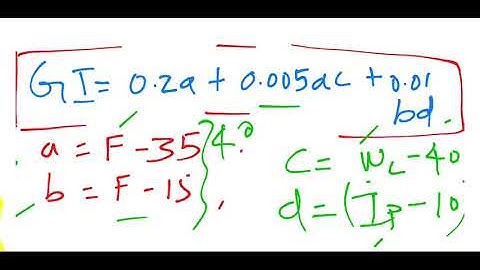 GI = 0.2a + 0.005ac + 0.01
bd
a = F - 35 } 40
b = F - 15 ,
c = W_L - 40
d = (I_P - 10)